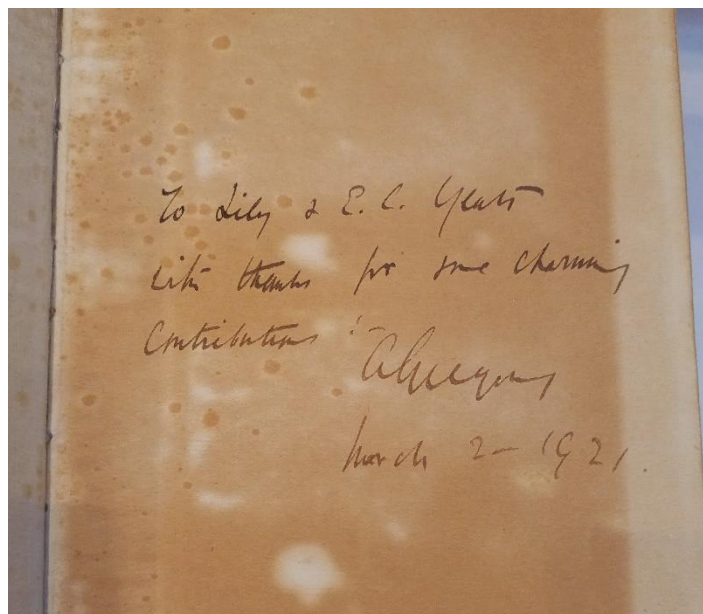 To Lily & E. C. Yeats
with thanks for some charming
contributions :-
A Gregory
March 2 - 1921.